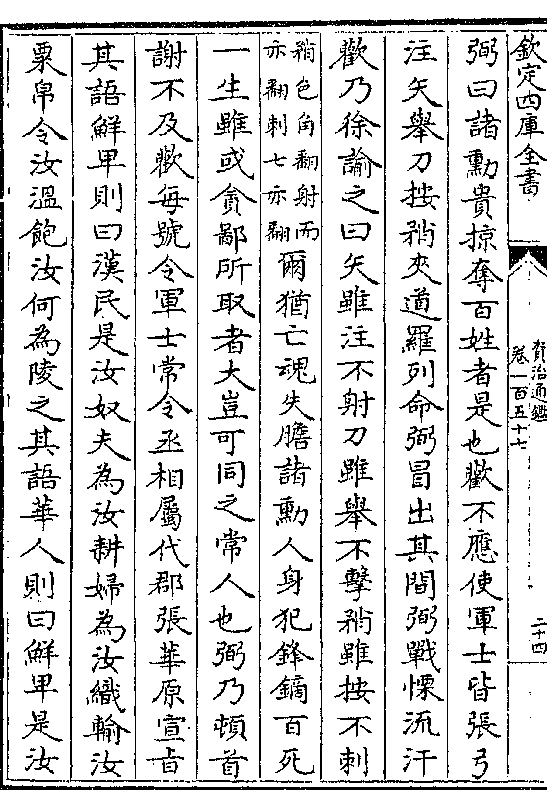 欽定四庫全書
資治通鑑
卷一百五十七
二十四
弼曰諸勳貴掠奪百姓者是也歡不應使軍士皆張弓
注矢舉刀按矟夾道羅列命弼冒出其間弼戰慄流汗
歡乃徐諭之曰矢雖注不射刀雖舉不擊矟雖按不刺
矟色角翻射而
亦翻刺七亦翻
爾猶亡魂失膽諸勳人身犯鋒鏑百死
一生雖或貪鄙所取者大豈可同之常人也弼乃頓首
謝不及歡每號令軍士常令丞相屬代郡張華原宣㫖
其語鮮卑則曰漢民是汝奴夫為汝耕婦為汝織輸汝
粟帛令汝溫飽汝何為陵之其語華人則曰鮮卑是汝